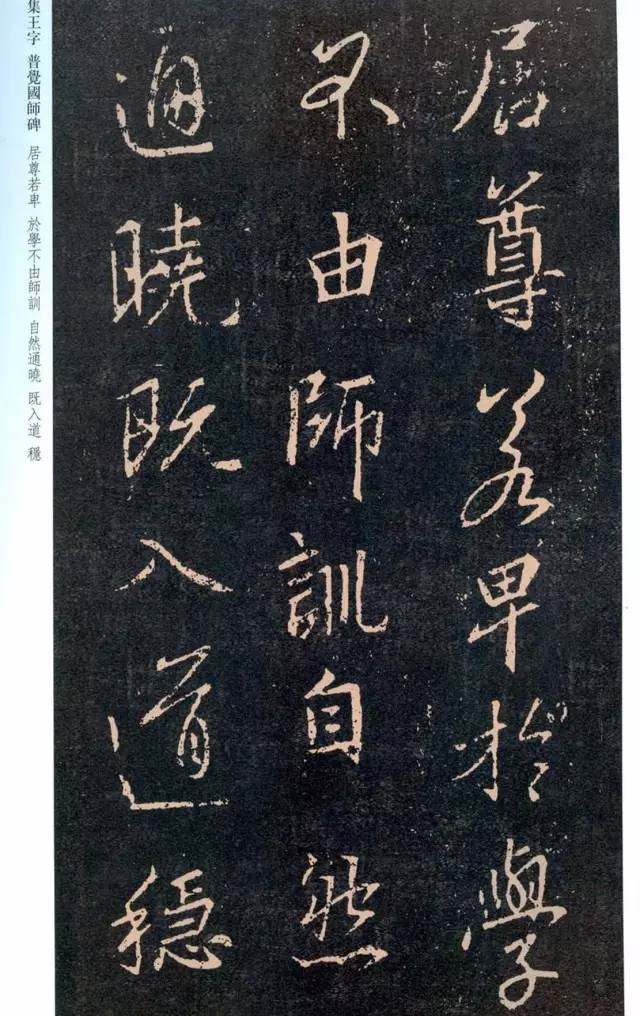 居尊若卑於學
不由師訓自然
通曉既入道穩
集王字 普覺國師碑 居尊若卑 於學不由師訓 自然通曉 既入道 穩